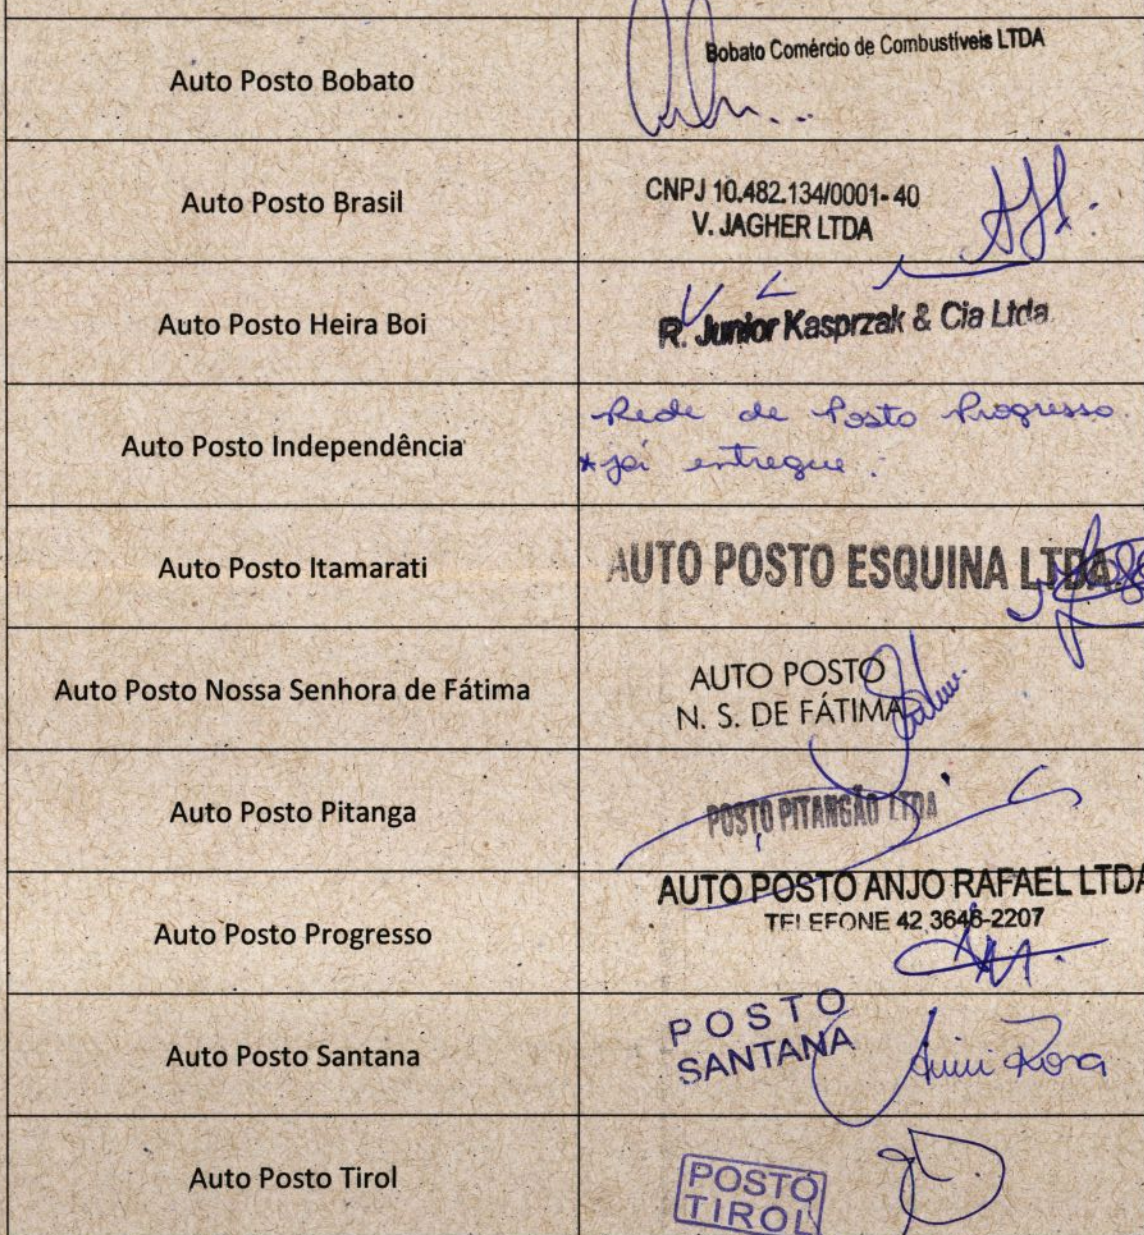 Auto Posto Bobato
Bobato Comércio de Combustíveis LTDA
Auto Posto Brasil
CNPJ 10.482.134/0001-40
V. JAGHER LTDA
Auto Posto Heira Boi
R. Junior Kasprzak & Cia Ltda
Auto Posto Independência
Rede de Posto Progresso.
*já entregue.
Auto Posto Itamarati
AUTO POSTO ESQUINA LTDA
Auto Posto Nossa Senhora de Fátima
AUTO POSTO
N. S. DE FÁTIMA
Auto Posto Pitanga
POSTO PITANGÃO LTDA
Auto Posto Progresso
AUTO POSTO ANJO RAFAEL LTDA
TELEFONE 42 3646-2207
Auto Posto Santana
POSTO
SANTANA
Rosa
Auto Posto Tirol
POSTO
TIROL